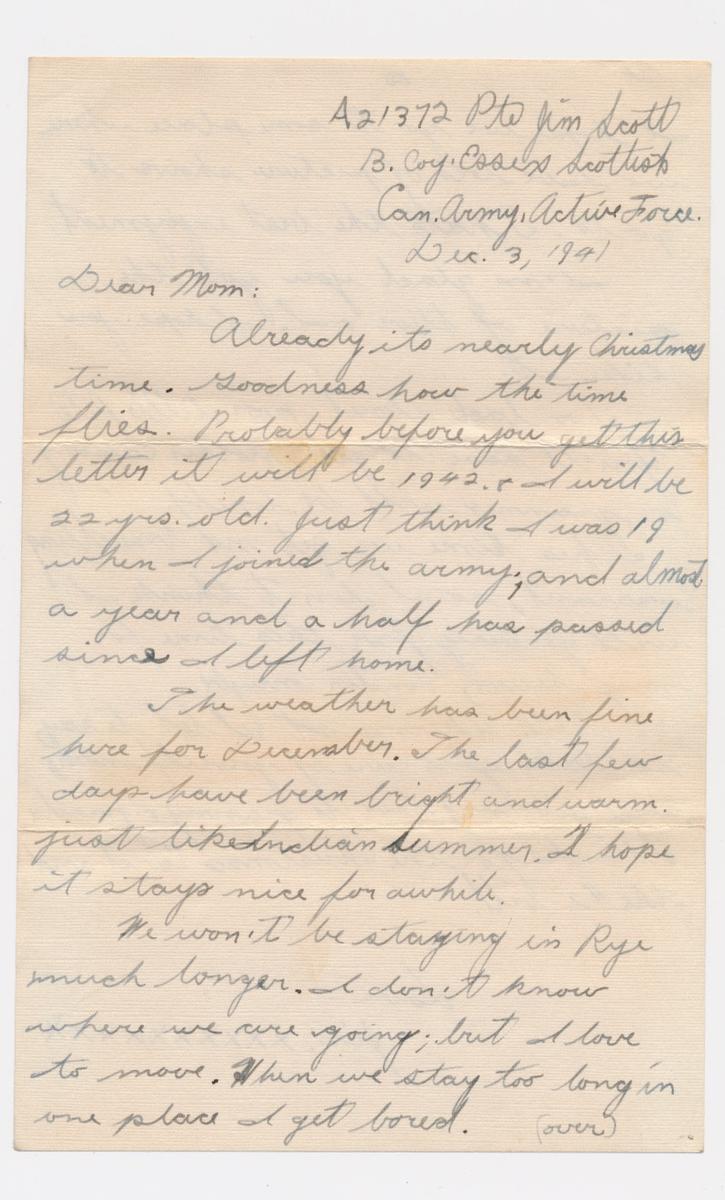 A21372 Pte Jim Scott
B. Coy. Essex Scottish
Can. Army, Active Force.
Dec. 3, 1941
Dear Mom:
Already its nearly Christmas
time. Goodness how the time
flies. Probably before you get this
letter it will be 1942. & I will be
22 yrs. old. Just think I was 19
when I joined the army; and almost
a year and a half has passed
since I left home.
The weather has been fine
here for December. The last few
days have been bright and warm.
just like Indian Summer. I hope
it stays nice for awhile.
We won't be staying in Rye
much longer. I don't know
where we are going; but I love
to move. When we stay too long in
one place I get bored. (over)